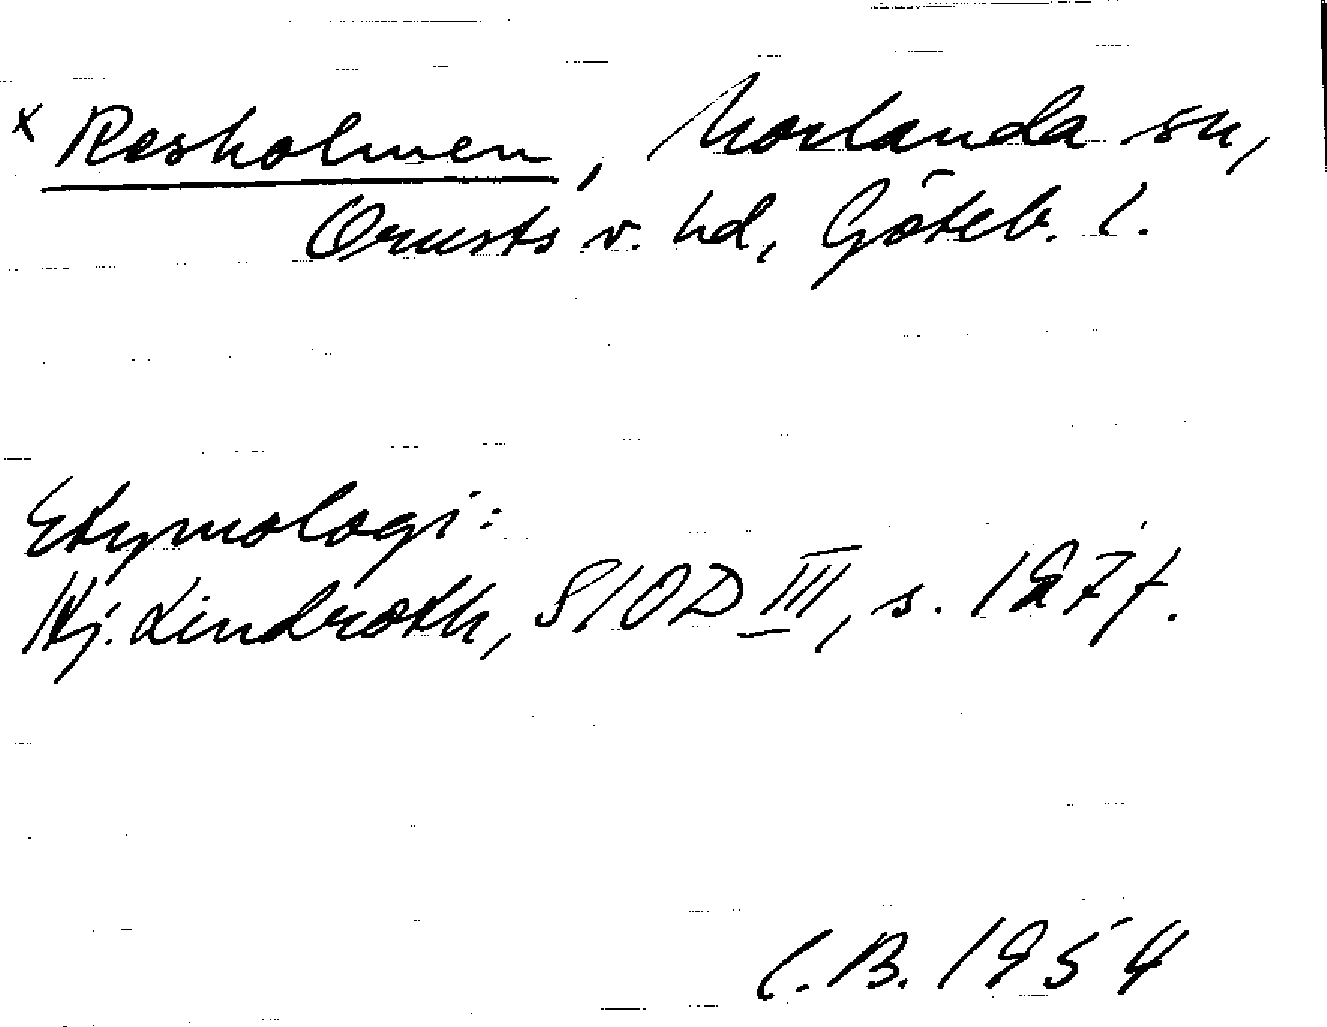 x Resholmen, Morlanda sn,
Orusts v. hd, Göteb. l.
Etymologi:
Hj. Lindroth, SIOD III, s. 127f.
C.B. 1954